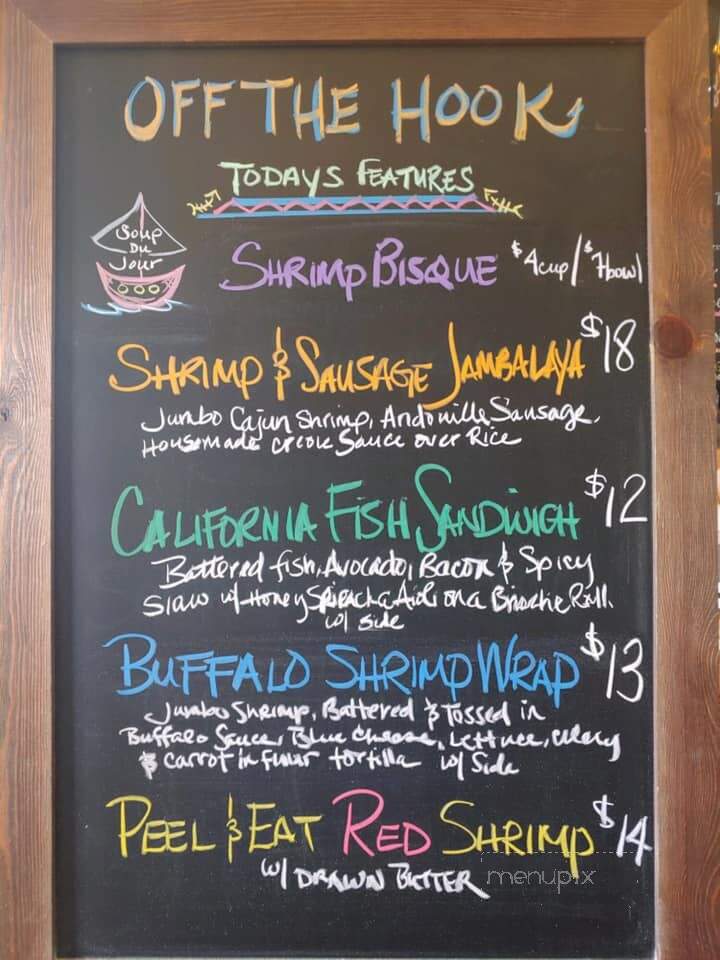 OFF THE HOOK
TODAYS FEATURES
Soup
Du
Jour
SHRIMP BISQUE $4cup/$7bowl
SHRIMP & SAUSAGE JAMBALAYA $18
Jumbo Cajun Shrimp, Andouille Sausage,
Housemade creole Sauce over Rice
CALIFORNIA FISH SANDWICH $12
Battered fish, Avocado, Bacon & Spicy
Slaw w/ Honey Sriracha Aioli on a Brioche Roll.
w/ side
BUFFALO SHRIMP WRAP $13
Jumbo Shrimp, Battered & Tossed in
Buffalo Sauce, Blue Cheese, Lettuce, celery
& carrot in flour tortilla w/ Side
PEEL & EAT RED SHRIMP $14
w/ DRAWN BUTTER
menupix